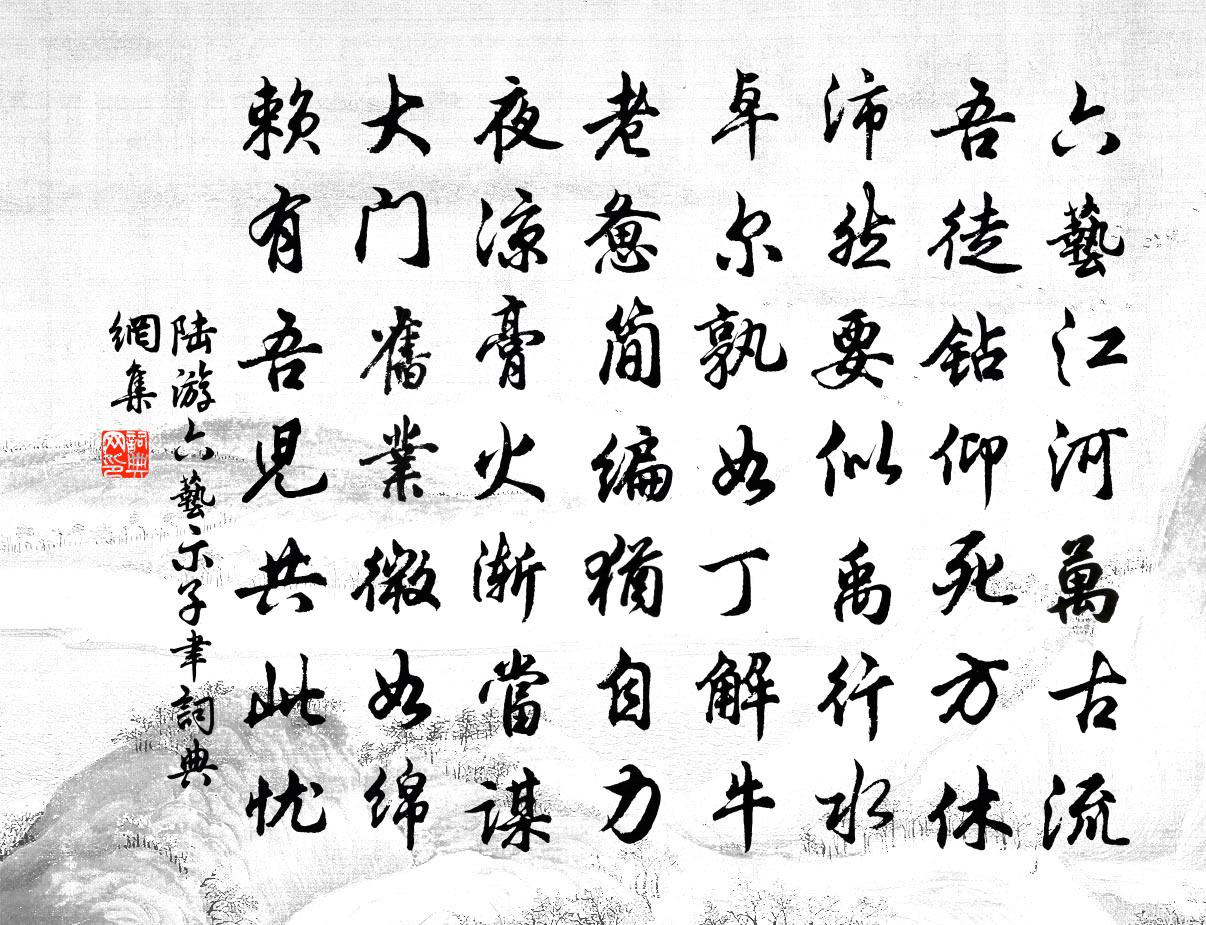 六藝江河萬古流
吾徒钻仰死方休
沛然要似禹行水
卓尔孰如丁解牛
老惫简编犹自力
夜凉膏火渐當谋
大门舊業微如绵
赖有吾児共此忧
陆游六藝示子聿詞典
網集
詞典
网印